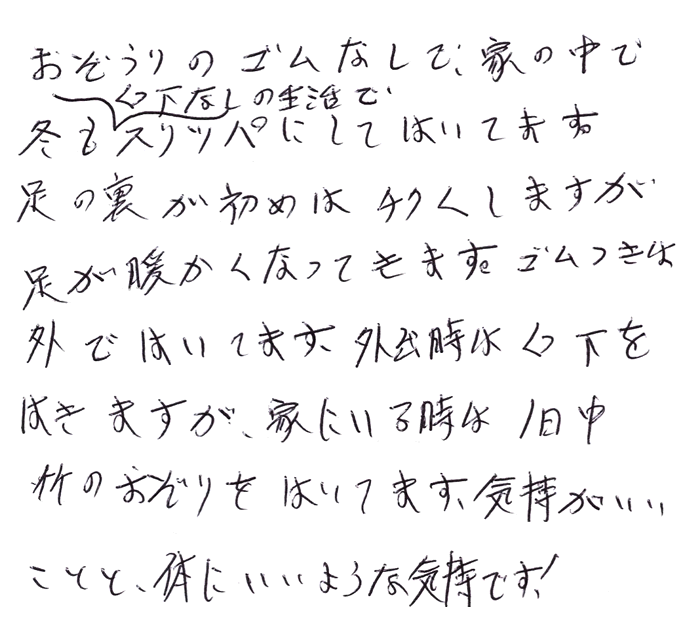 おぞうりのゴムなしで、家の中で
く下なしの生活で
冬もスリッパにしてはいてます。
足の裏が初めはチクくしますが
足が暖かくなってきます。ゴムつきは
外ではいてます、外出時はく下を
はきますが、家にいる時は1日中
竹のおぞりをはいてます、気持がいい
ことと、体にいいような気持です!